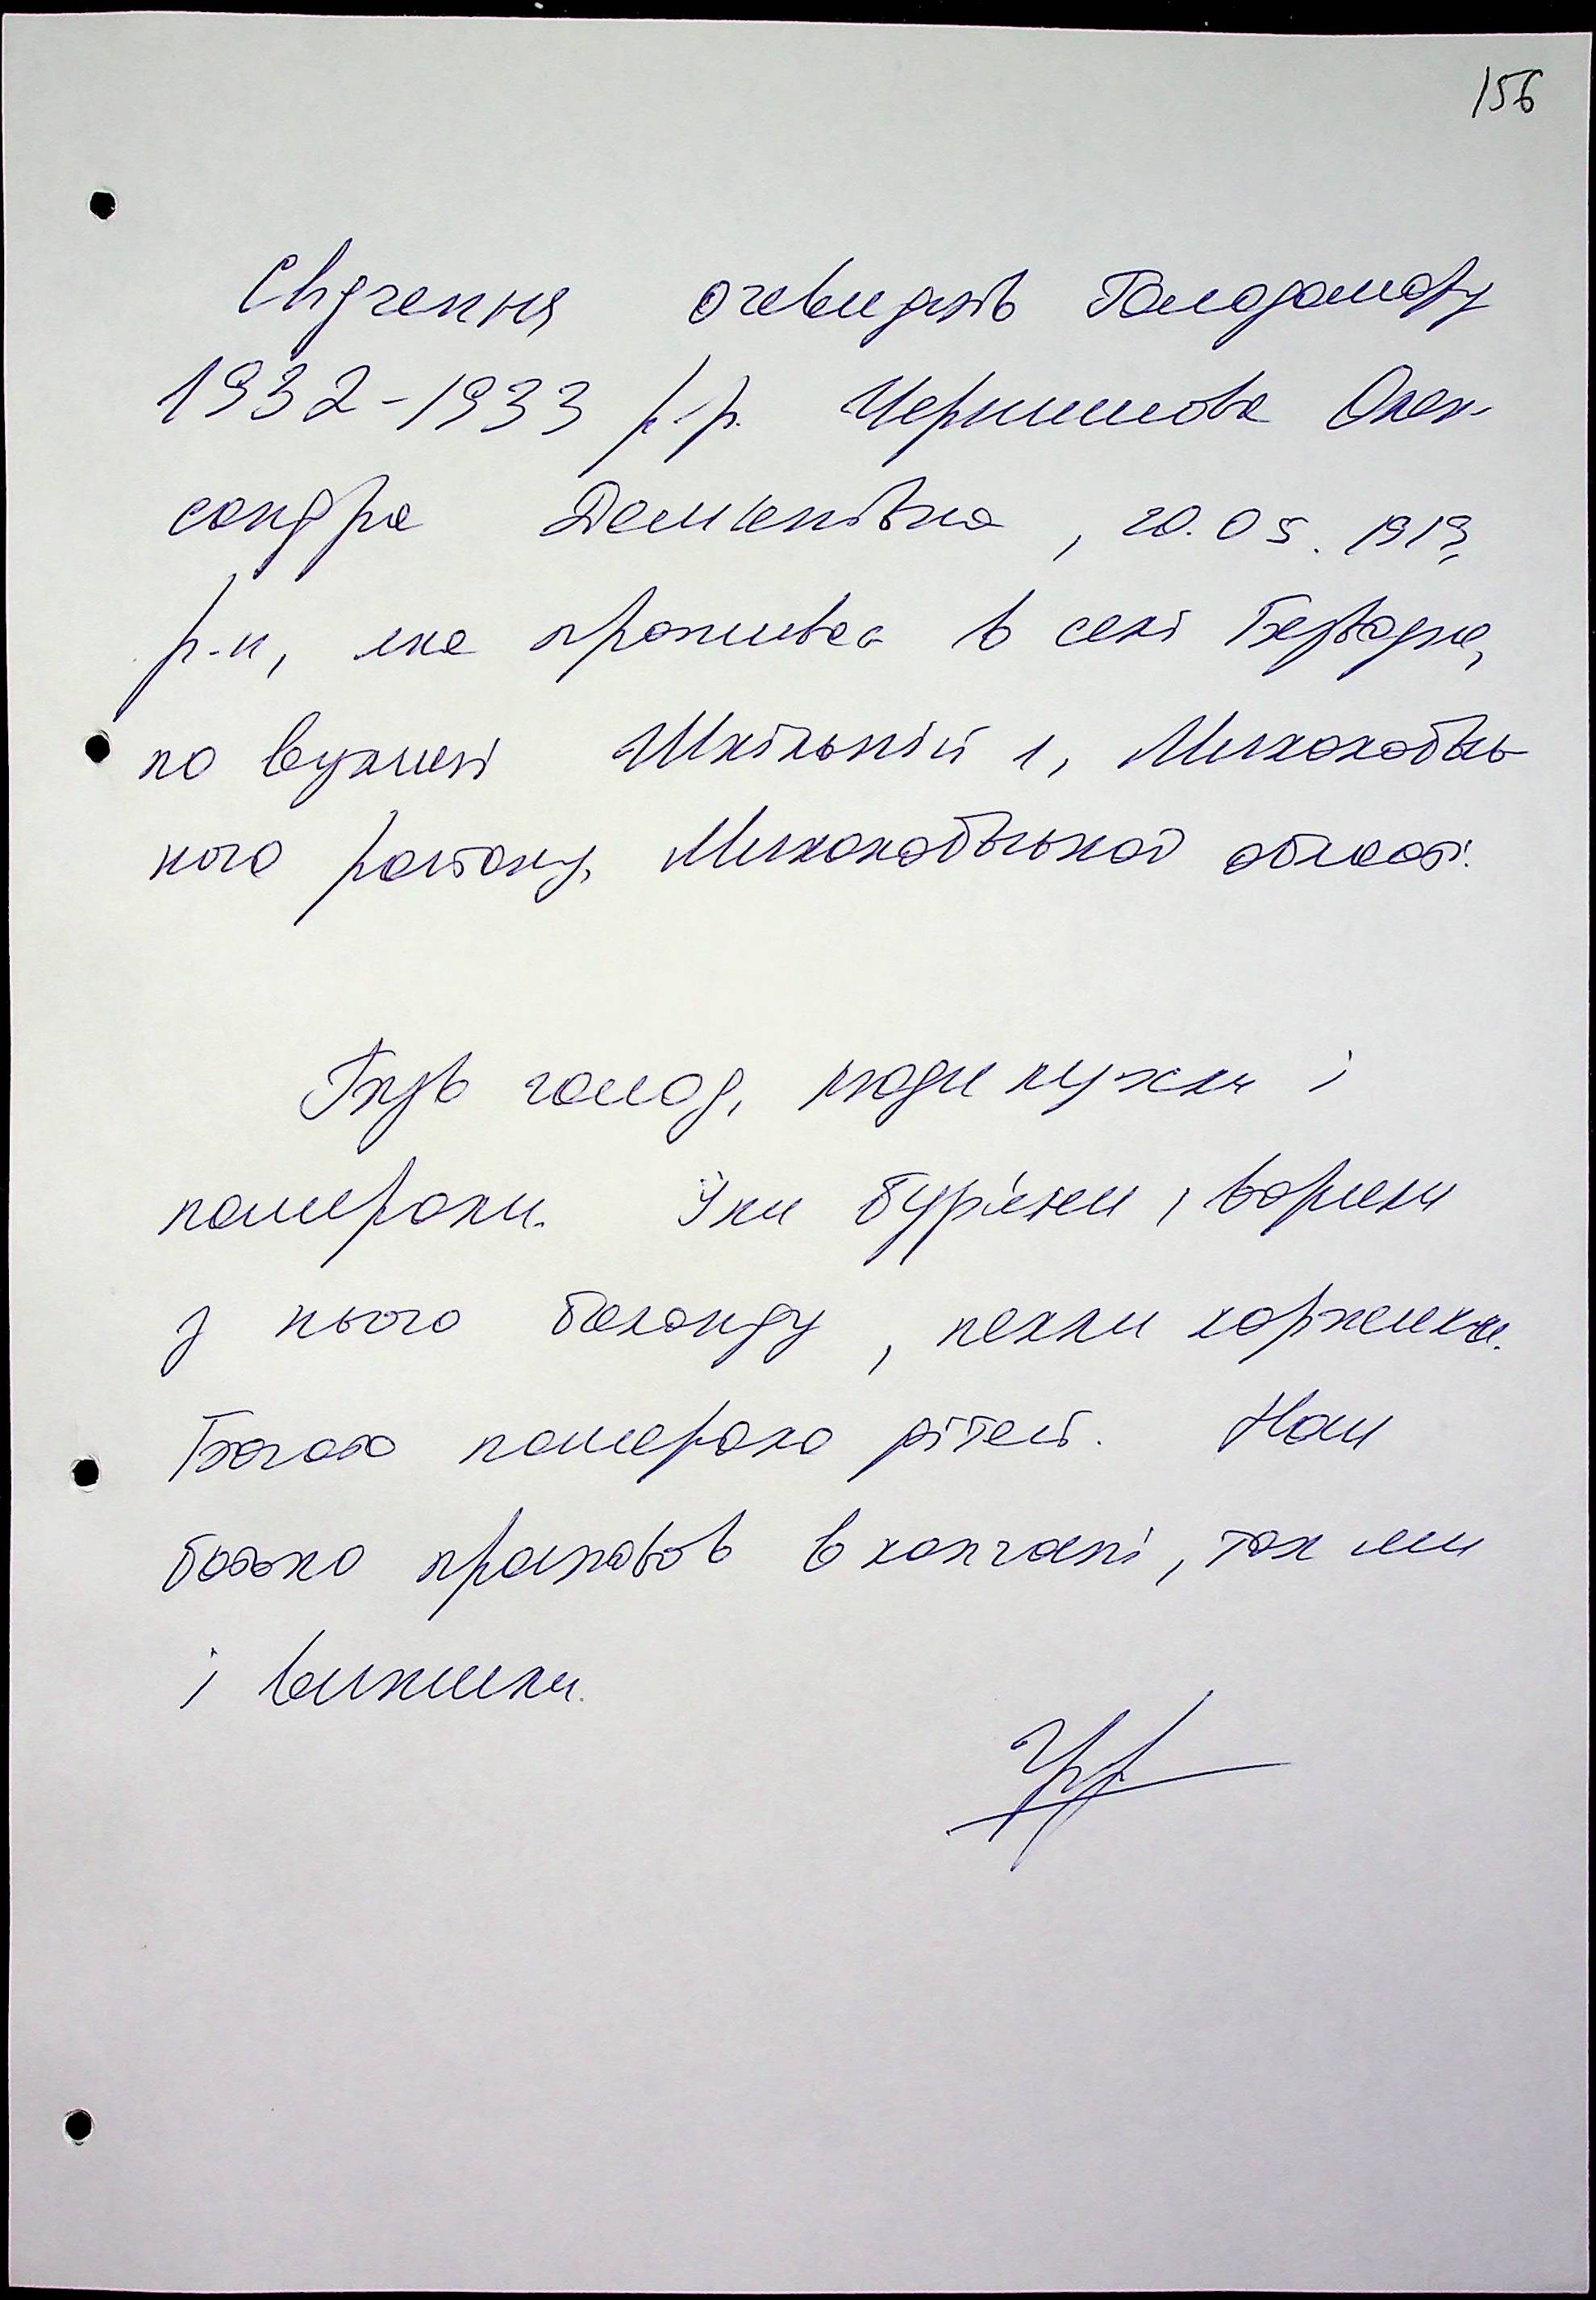 156
Свідчення очевидків Голодомору
1932-1933 р.р. Чернишова Олек-
сандра Дем'янівна, 20.05.1919
р.н, яка проживає в селі Безводне,
по вулиці Шкільній 1, Миколаївсь-
кого району, Миколаївської області.
Був голод, люди пухли і
помирали. Їли бур'яни, варили
з нього баланду, пекли коржики.
Багато померало дітей. Наш
батько працював в колгоспі, так ми
і вижили.